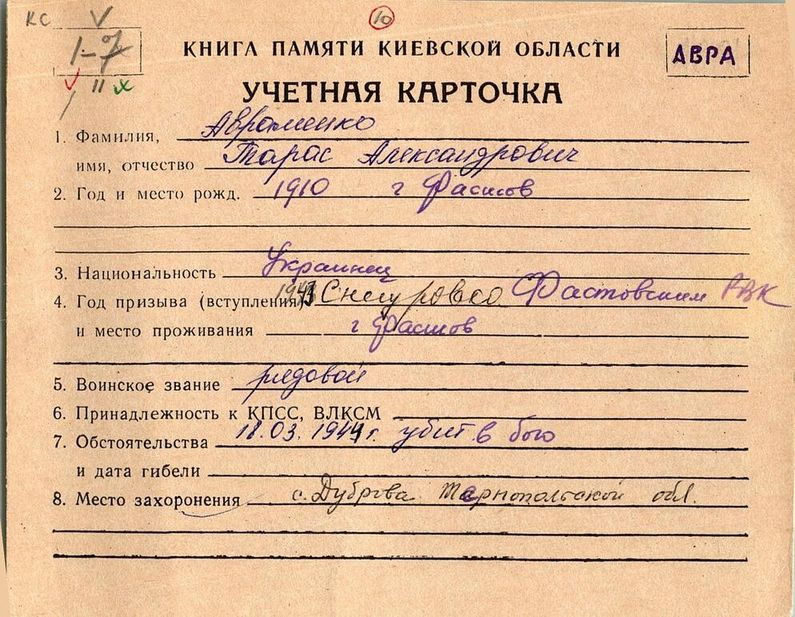 КС V 10
1-7
КНИГА ПАМЯТИ КИЕВСКОЙ ОБЛАСТИ
АВРА
УЧЕТНАЯ КАРТОЧКА
11
1. Фамилия, Авраменко
имя, отчество Тарас Александрович
2. Год и место рожд. 1910 г Фастов
3. Национальность Украинец
4. Год призыва (вступления) 1943 Снегуровка Фастовским РВК
и место проживания г Фастов
5. Воинское звание рядовой
6. Принадлежность к КПСС, ВЛКСМ
7. Обстоятельства 18.03.1944 г. убит в бою
и дата гибели
8. Место захоронения с. Дуброва Тарнопольской обл.